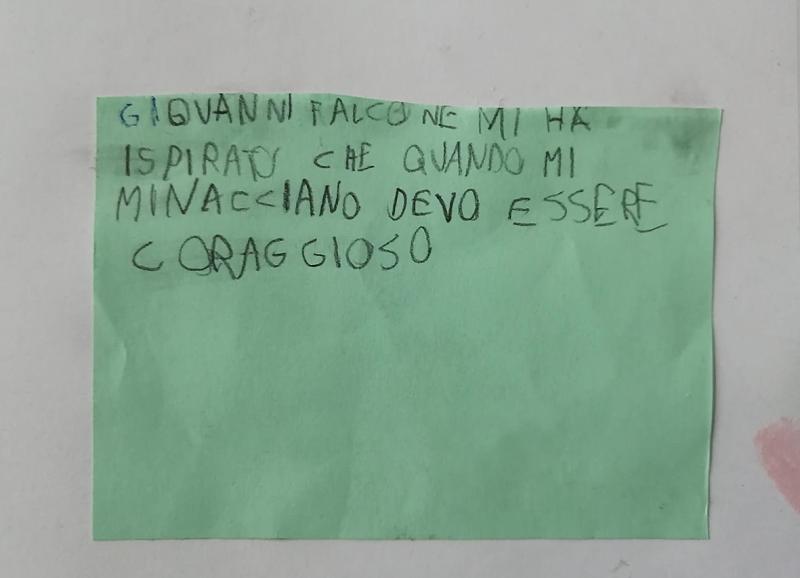 GIOVANNI FALCONE MI HA
ISPIRATO CHE QUANDO MI
MINACCIANO DEVO ESSERE
CORAGGIOSO